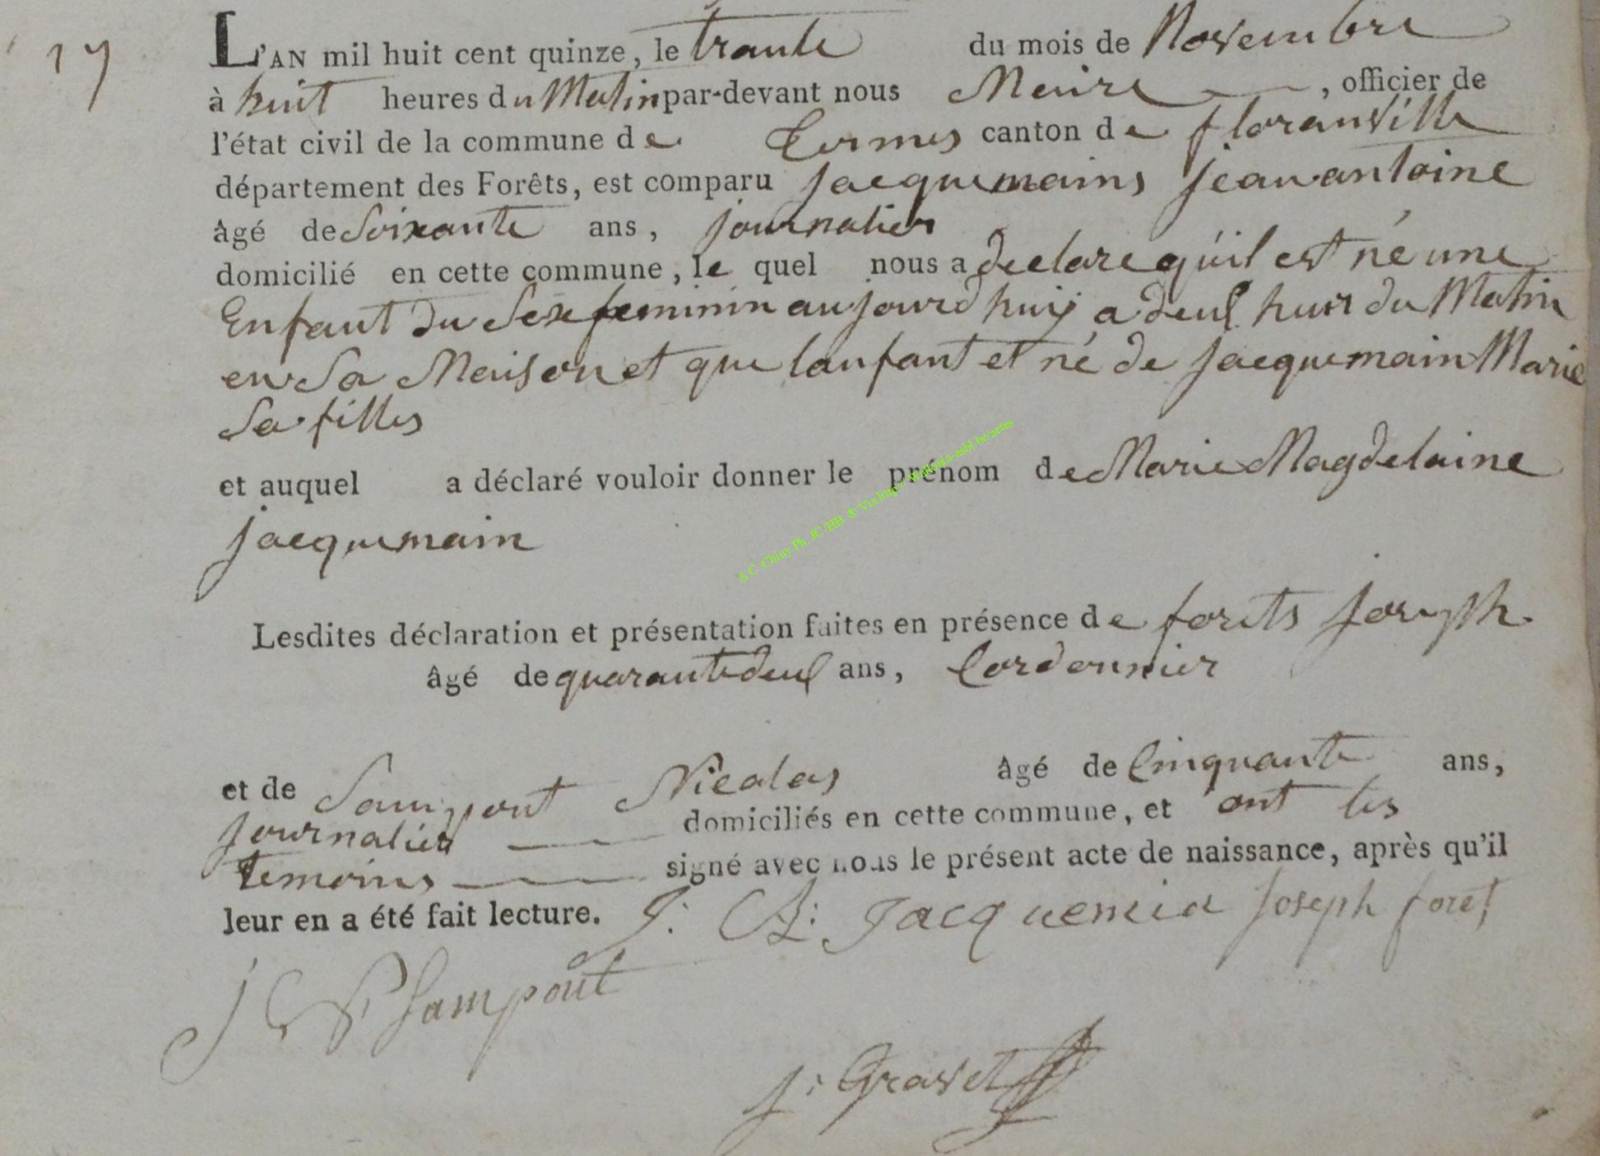 17
L'AN mil huit cent quinze, le trante du mois de Novembre
à huit heures du Matin par-devant nous Maire, officier de
l'état civil de la commune de termes canton de floranville
département des Forêts, est comparu jacquemains jean antoine
âgé de Soixante ans, journalier
domicilié en cette commune, le quel nous a declare qu'il est né une
Enfant du Sexe feminin aujourdhuij a deux heur du Matin
en Sa Maison et que lanfant et né de jacquemain Marie
Sa filles
et auquel a déclaré vouloir donner le prénom de Marie Magdelaine
jacquemain
Lesdites déclaration et présentation faites en présence de forets joseph
âgé de quarante deux ans, Cordonnier
et de Sampont Nicolas âgé de Cinquante ans,
journalier domiciliés en cette commune, et ont les
temoins signé avec nous le présent acte de naissance, après qu'il
leur en a été fait lecture. J: A: Jacquemin Joseph foret
Sampont
j: Gravet